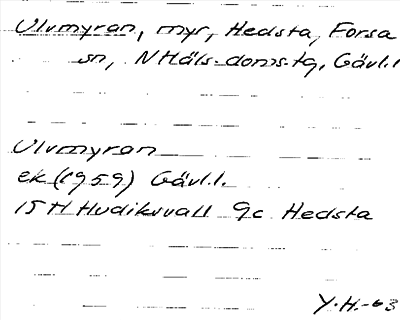 Ulvmyran, myr, Hedsta, Forsa
sn, NHäls. doms.tg, Gävl.l
Ulvmyran
ek (1959) Gävl.l.
15H Hudiksvall 9c Hedsta
Y.H.-63